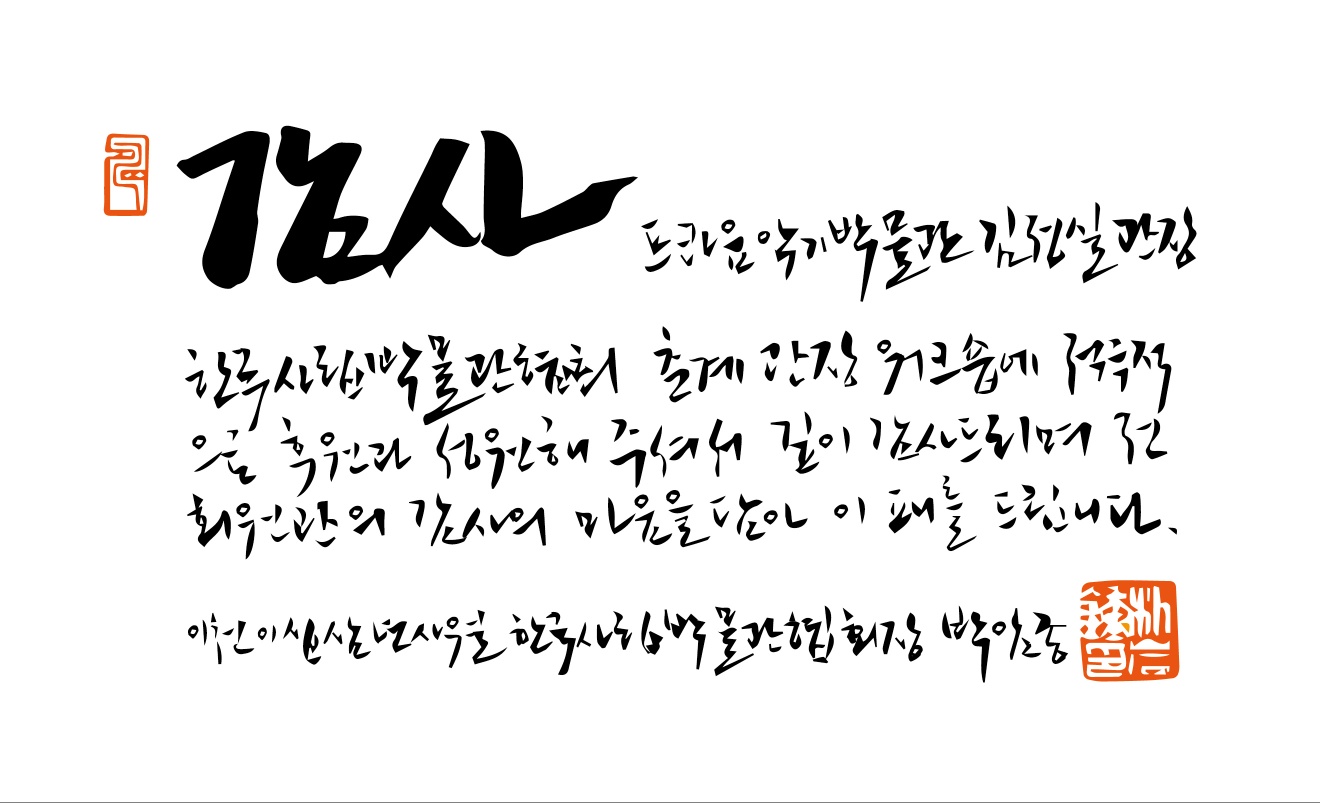 감사
프라움악기박물관 김정실 관장
한국사립박물관협회 춘계 관장 워크숍에 적극적
으로 후원과 성원해 주셔서 깊이 감사드리며 전
회원관의 감사의 마음을 담아 이 패를 드립니다.
이천이십삼년사월 한국사립박물관협회장 박암종